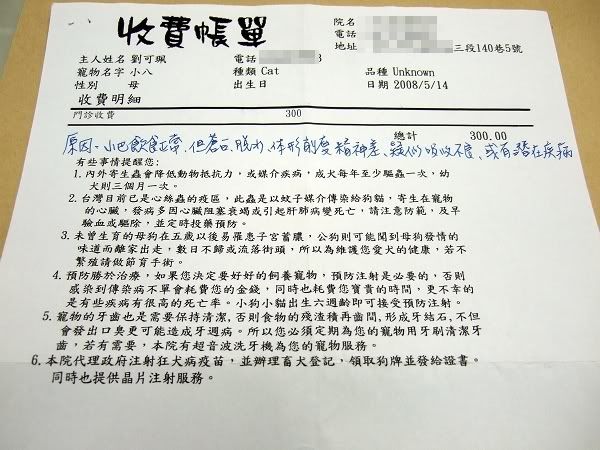 收費帳單
院名
電話
地址 三段140巷5號
主人姓名 劉可珮 電話 3
寵物名字 小八 種類 Cat 品種 Unknown
性別 母 出生日 日期 2008/5/14
收費明細
門診收費 300
總計 300.00
原因:小巴飲食正常、但蒼白、脫水、体形削瘦 精神差、疑似吸收不良、或有潛在疾病
有些事情提醒您:
1.內外寄生蟲會降低動物抵抗力,或媒介疾病,成犬每年至少驅蟲一次,幼
犬則三個月一次。
2.台灣目前已是心絲蟲的疫區,此蟲是以蚊子媒介傳染給狗貓,寄生在寵物
的心臟,發病多因心臟阻塞衰竭或引起肝肺病變死亡,請注意防範,及早
驗血或驅除,並定時投藥預防。
3.未曾生育的母狗在五歲以後易罹患子宮蓄膿,公狗則可能聞到母狗發情的
味道而離家出走,數日不歸或流落街頭,所以為維護您愛犬的健康,若不
繁殖請做節育手術。
4.預防勝於治療,如果您決定要好好的飼養寵物,預防注射是必要的,否則
感染到傳染病不單會耗費您的金錢,同時也耗費您寶貴的時間,更不幸的
是有些疾病有很高的死亡率。小狗小貓出生六週齡即可接受預防注射。
5.寵物的牙齒也是需要保持清潔,否則食物的殘渣積再齒間,形成牙結石,不但
會發出口臭更可能造成牙週病。所以您必須定期為您的寵物用牙刷清潔牙
齒,若有需要,本院有超音波洗牙機為您的寵物服務。
6.本院代理政府注射狂犬病疫苗,並辦理畜犬登記,領取狗牌並發給證書。
同時也提供晶片注射服務。